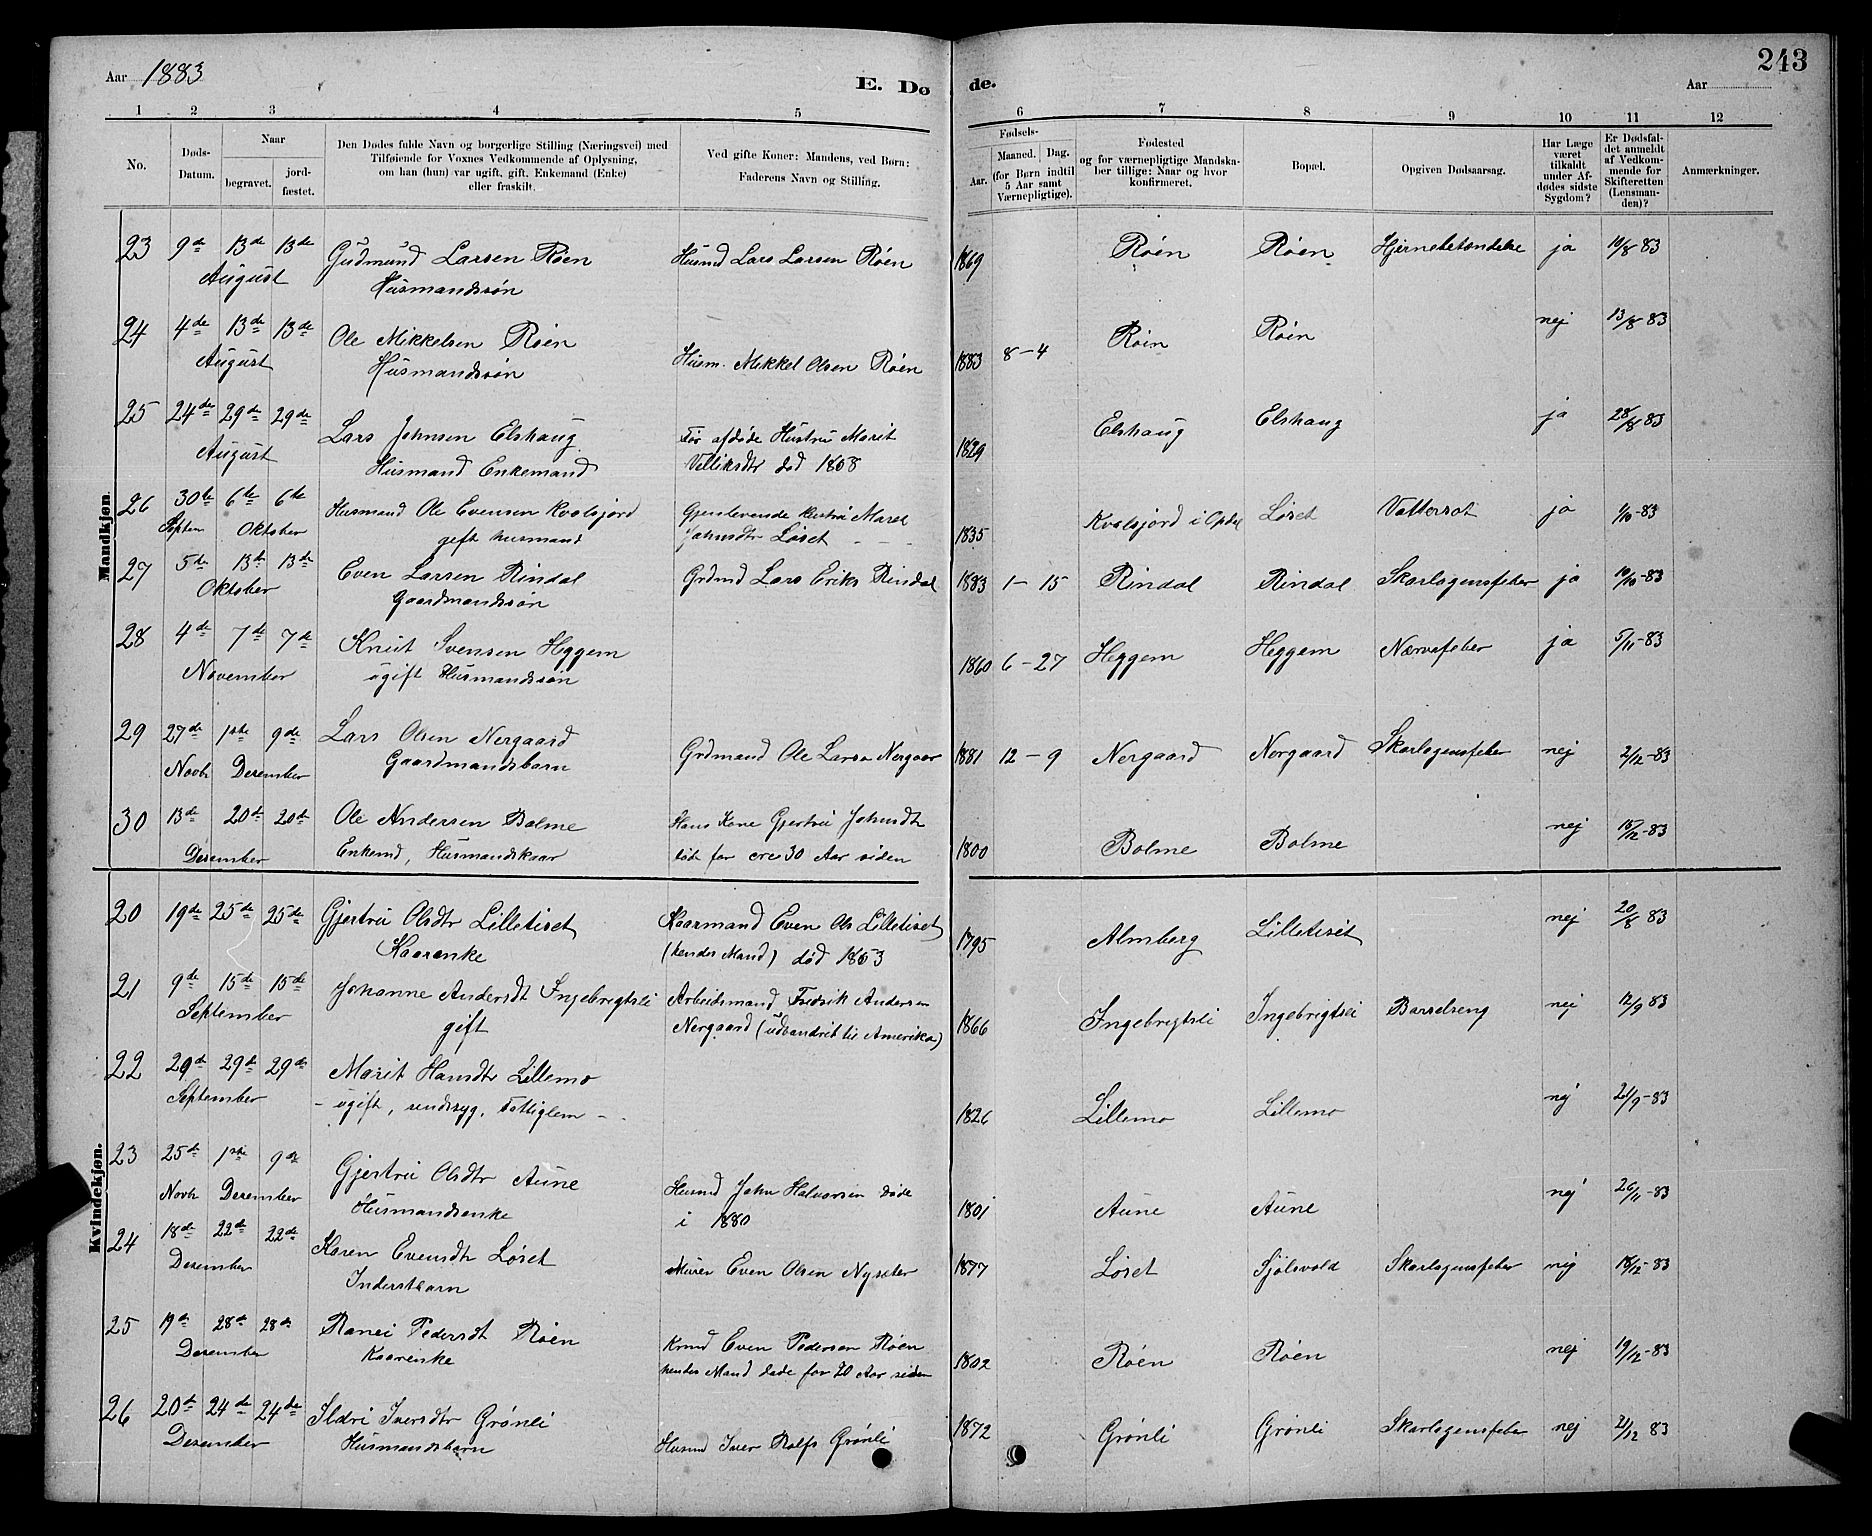 Aar 1883
E. Dø
de.
Aar
243
1 2 3 4 5 6 7 8 9 10 11 12
No.
Døds-
Datum.
Naar
begravet.
jord-
fæstet.
Den Dødes fulde Navn og borgerlige Stilling (Næringsvei) med
Tilføiende for Voxnes Vedkommende af Oplysning,
om han (hun) var ugift, gift, Enkemand (Enke)
eller fraskilt.
Ved gifte Koner: Mandens, ved Børn:
Faderens Navn og Stilling.
Fødsels-
Aar.
Maaned.
Dag.
(for Børn indtil
5 Aar samt
Værnepligtige).
Fødested
og for værnepligtige Mandska-
ber tillige: Naar og hvor
konfirmeret.
Bopæl.
Opgiven Dødsaarsag.
Har Læge
været
tilkaldt
under Af-
dødes sidste
Sygdom?
Er Dødsfal-
det anmeldt
af Vedkom-
mende for
Skifteretten
(Lensman-
den)?
Anmærkninger.
Mandkjøn.
23 9de 13de 13de Gudmund Larsen Røen Husmd Lars Larsen Røen 1869 Røen Røen Hjernebetændelse ja 10/8 83
August Husmandssøn
24 4de 13de 13de Ole Mikkelsen Røen Husm. Mikkel Olsen Røen 1883 8-4 Røen Røen nej 13/8 83
August Husmandssøn
25 24de 29de 29de Lars Johnsen Elshaug Før afdøde Hustru Marit 1829 Elshaug Elshaug ja 28/8 83
August Husmand Enkemand død 1868
26 30te 6te 6te Husmand Ole Evensen Kvalsjord Gjenlevende Hustru Maret 1835 Kvalsjord i Opdal Løset Vattersot ja 1/10-83
Septem Oktober gift husmand Johnsdtr Løset
27 5te 13de 13de Even Larsen Rindal Grdmd Lars Eriks Rindal 1883 1-15 Rindal Rindal Skarlagensfeber ja 10/10-83
Oktober Gaardmandssøn
28 4de 7de 7de Knut Svensen Heggem 1860 6-27 Heggem Heggem Nervefeber ja 5/11-83
November ugift Husmandssøn
29 27de 1ste 9de Lars Olsen Nergaard Grdmand Ole Larsen Nergaar 1881 12-9 Nergaard Nergaard Skarlagensfeber nej 2/12-83
Novbr Desember Gaardmandsbarn
30 13de 20de 20de Ole Andersen Bolme Hans Kone Gjertru Johnsdtr 1800 Bolme Bolme nej 15/12-83
Desember Enkemd, Husmandskaar døde for cirk 30 Aar siden
Kvindekjøn.
20 19de 25de 25de Gjertru Olsdtr Lilletiset Kaarmand Even Ols Lilletiset 1795 Almberg Lilletiset nej 20/8 83
Kaarenke (hendes Mand) død 1863
21 9de 15de 15de Johanne Andersdt Ingebrigtsli Arbeidsmand Fredrik Andersen 1866 Ingebrigtsli Ingebrigtsli Barselseng nej 12/9 83
September gift Nergaard (udvandret til Amerika)
22 20de 29de 29de Marit Hansdtr Lillemo 1826 Lillemo Lillemo nej 21/9-83
September - ugift, sindssyg, Fattiglem -
23 25de 1ste 9de Gjertru Olsdtr Aune Husmd John Halvorsen døde 1801 Aune Aune nej 26/11-83
Novbr Desember Husmandsenke i 1880
24 18de 22de 22de Karen Evensdtr Løset Murer Even Olsen Nyseter 1877 Løset Sjølsvold Skarlagensfeber nej 18/12-83
Desember Inderstbarn
25 19de 28de 28de Ranei Pedersdt Røen Even Pedersen Røen 1802 Røen Røen nej 19/12-83
Desember Kaarenke hendes Mand døde for 20 Aar siden
26 20de 24de 24de Ildri Iversdtr Grønli Husmd Iver Rolfs Grønli 1872 Grønli Grønli Skarlagensfeber nej 21/12 83
Desember Husmandsbarn